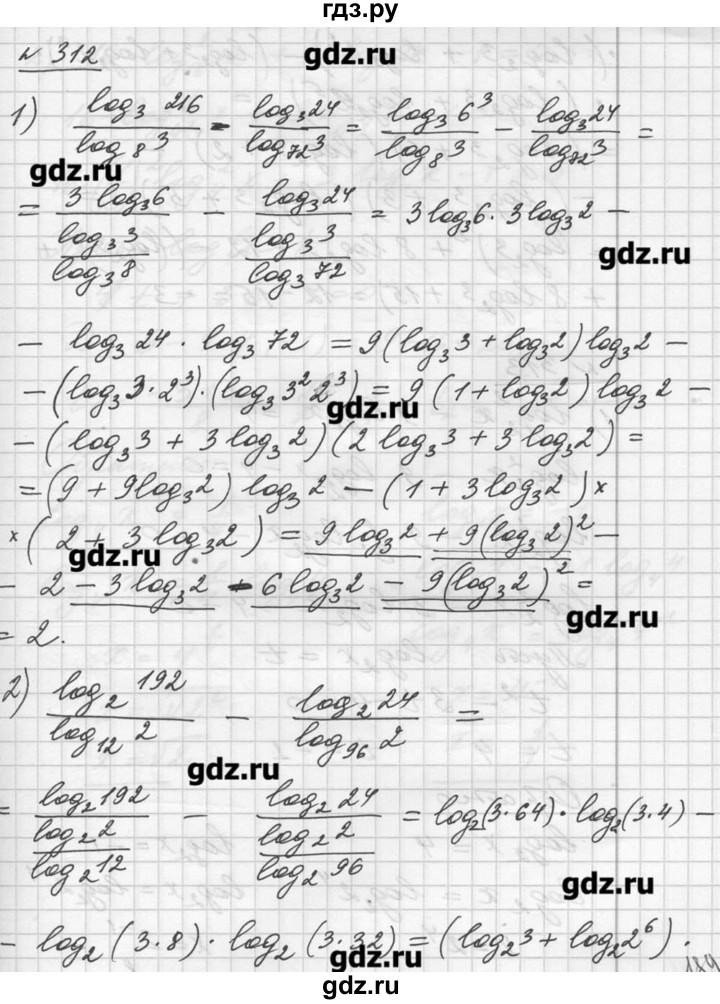 гдз.ру
№ 312
gdz.ru
1) log₃ 216 / log₈ 3 - log₃ 24 / log₇₂ 3 = log₃ 6³ / log₈ 3 - log₃ 24 / log₇₂ 3 =
gdz.ru
= 3 log₃ 6 / (log₃ 3 / log₃ 8) - log₃ 24 / (log₃ 3 / log₃ 72) = 3 log₃ 6 · 3 log₃ 2 -
gdz.ru
- log₃ 24 · log₃ 72 = 9 (log₃ 3 + log₃ 2) log₃ 2 -
- (log₃ 3 · 2³) · (log₃ 3² 2³) = 9 (1 + log₃ 2) log₃ 2 -
gdz.ru
- (log₃ 3 + 3 log₃ 2) (2 log₃ 3 + 3 log₃ 2) =
= (9 + 9 log₃ 2) log₃ 2 - (1 + 3 log₃ 2) ×
× (2 + 3 log₃ 2) = 9 log₃ 2 + 9 (log₃ 2)² -
gdz.ru
- 2 - 3 log₃ 2 - 6 log₃ 2 - 9 (log₃ 2)² =
gdz.ru
= 2.
2) log₂ 192 / log₁₂ 2 - log₂ 24 / log₉₆ 2 =
gdz.ru
= log₂ 192 / (log₂ 2 / log₂ 12) - log₂ 24 / (log₂ 2 / log₂ 96) = log₂ (3 · 64) · log₂ (3 · 4) -
gdz.ru
- log₂ (3 · 8) · log₂ (3 · 32) = (log₂ 3 + log₂ 2⁶) ·
gdz.ru
189
гдз.ру